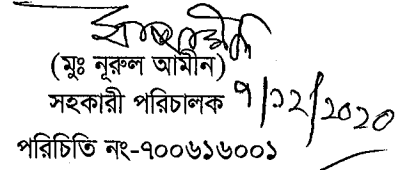 (মুঃ নূরুল আমীন)
সহকারী পরিচালক ৭/১২/২০২০
পরিচিতি নং-৭০০৬১৬০০১